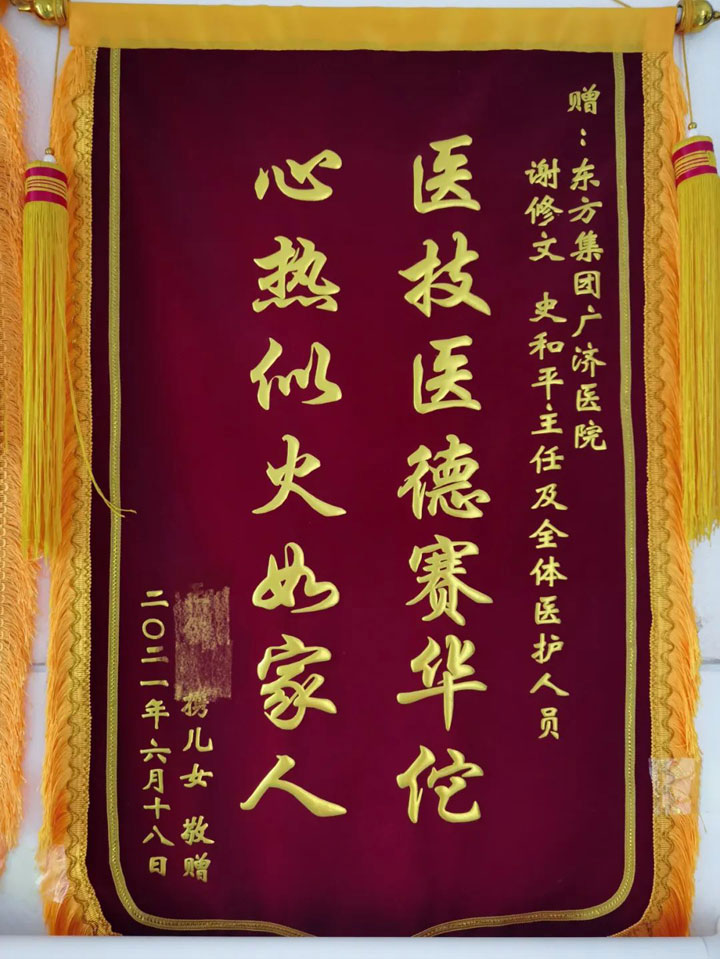 赠：东方集团广济医院
谢修文 史和平主任及全体医护人员
医技医德赛华佗
心热似火如家人
携儿女 敬赠
二〇二一年六月十八日